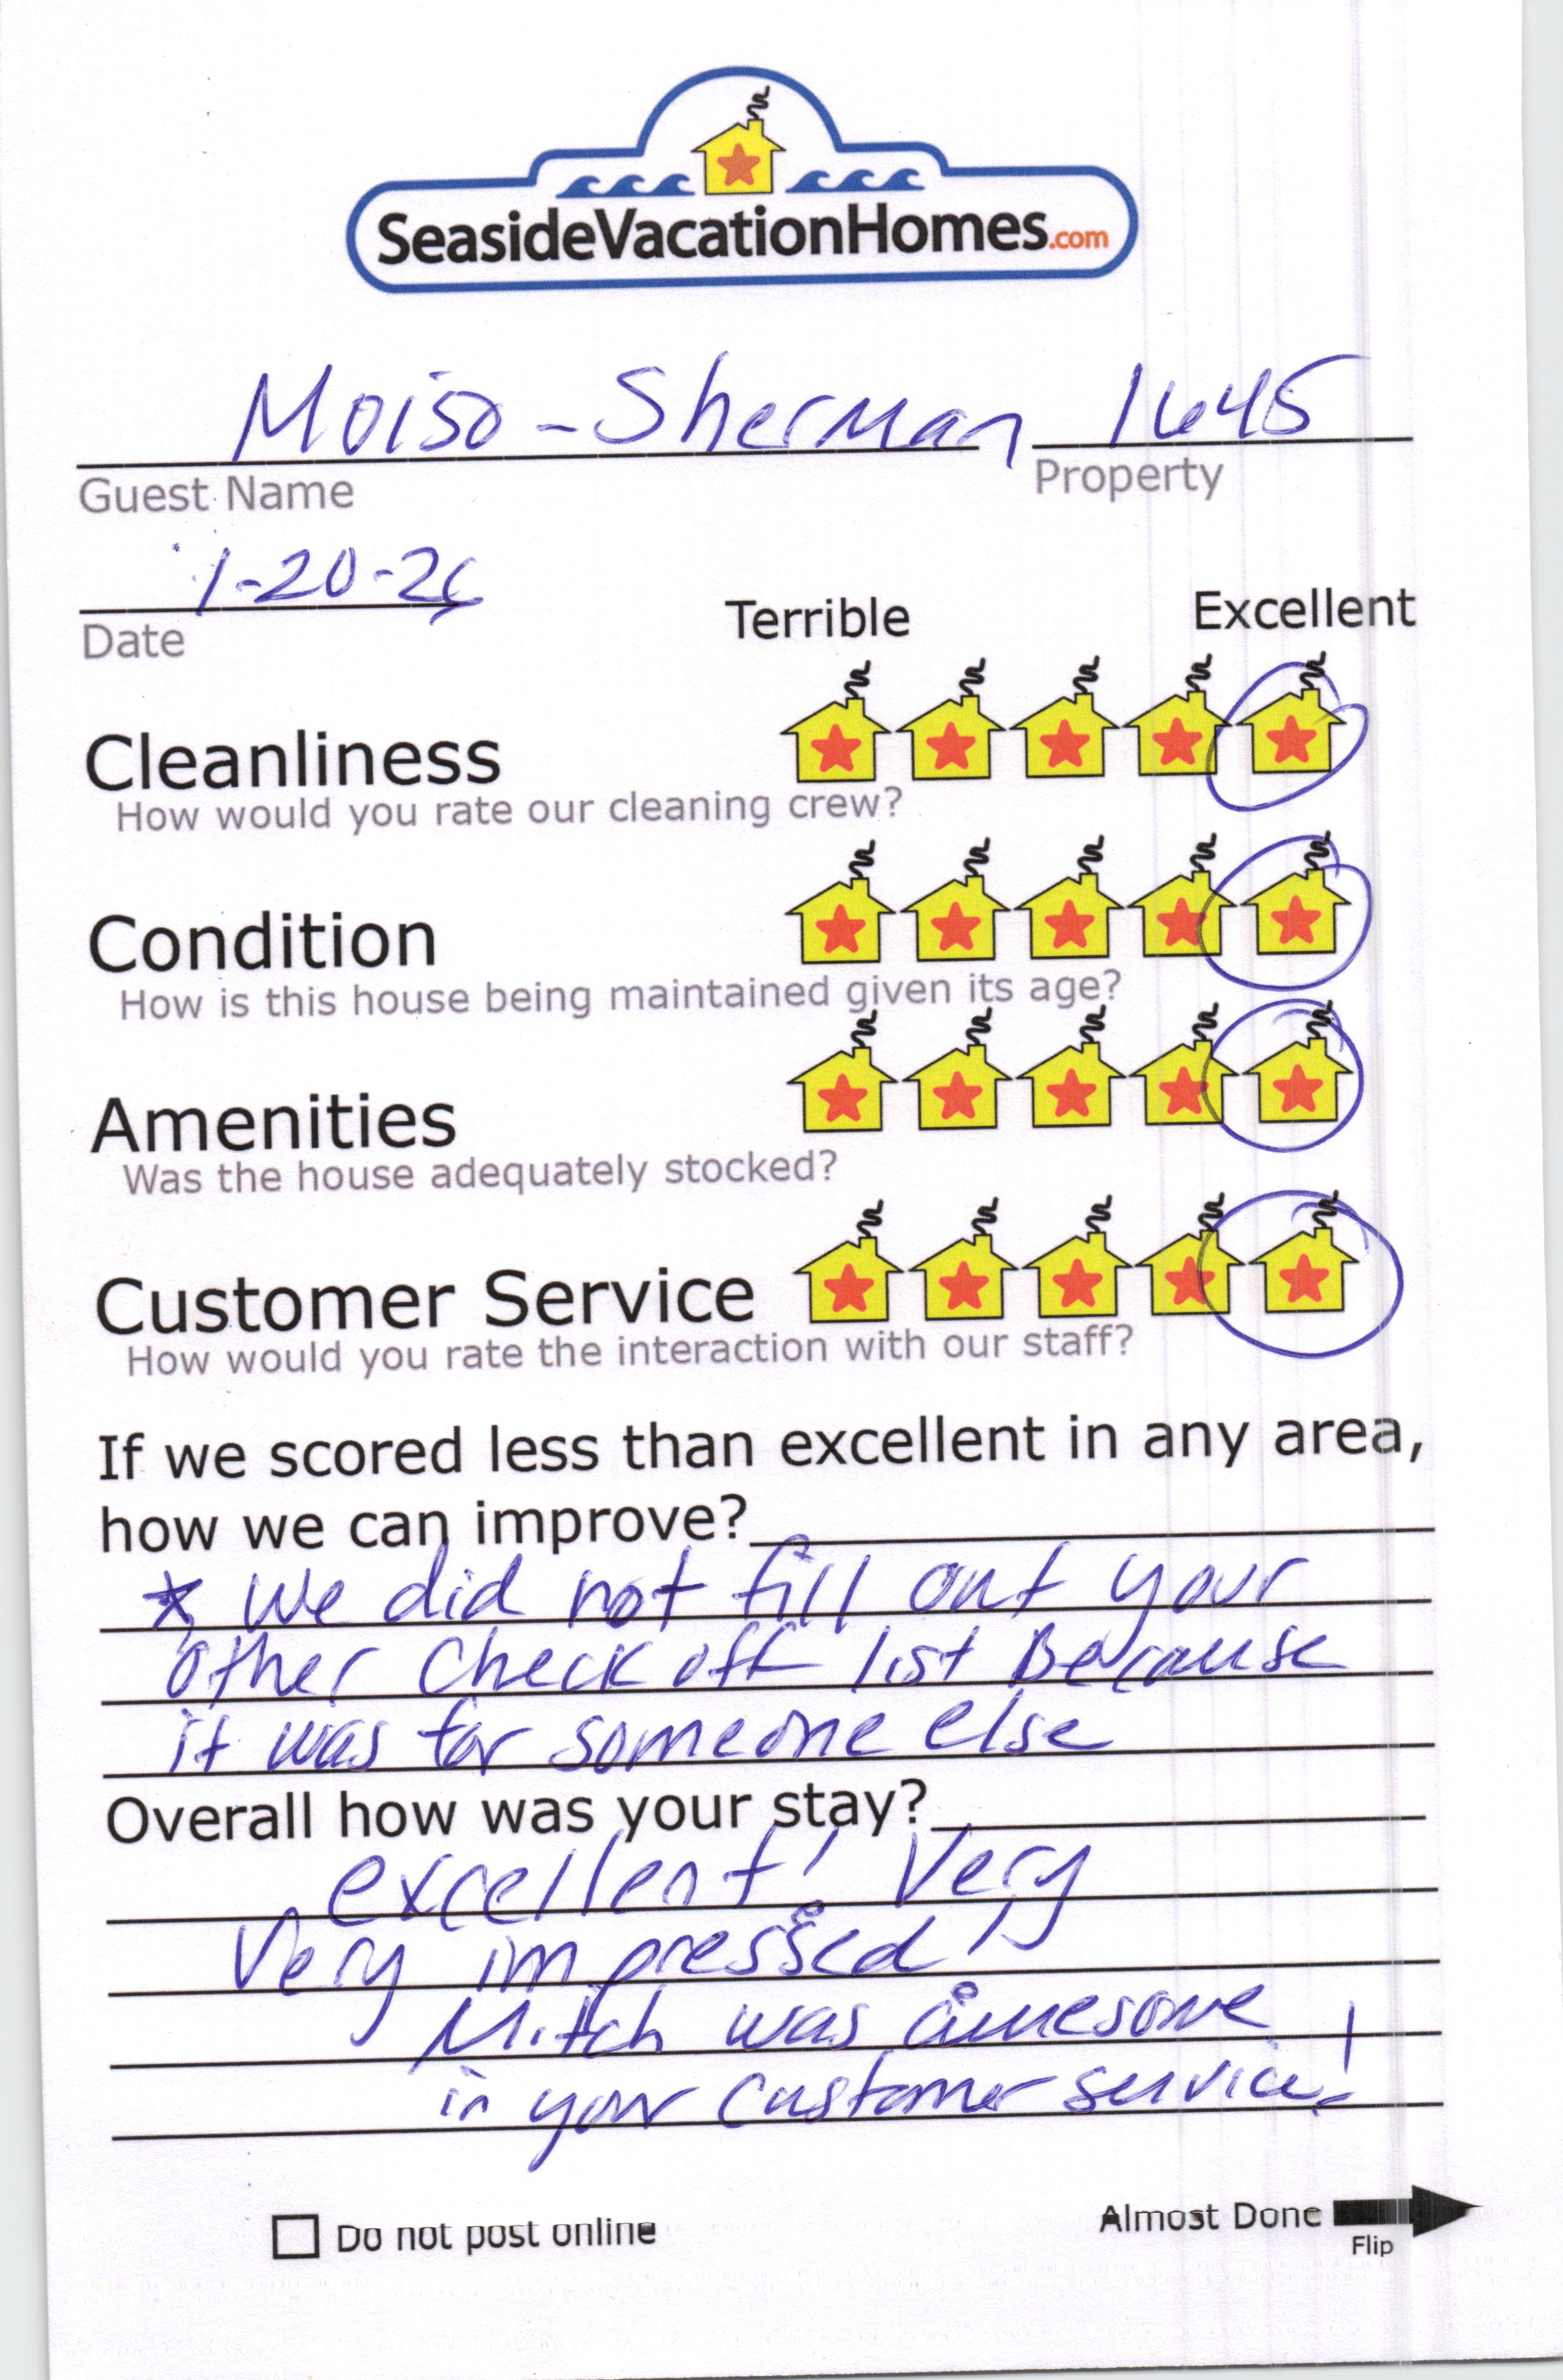 SeasideVacationHomes.com
Moiso-Sherman 1645
Guest Name Property
1-20-26
Date
Terrible Excellent
Cleanliness
How would you rate our cleaning crew?
Condition
How is this house being maintained given its age?
Amenities
Was the house adequately stocked?
Customer Service
How would you rate the interaction with our staff?
If we scored less than excellent in any area,
how we can improve?
* We did not fill out your
other check off list Because
it was for someone else
Overall how was your stay?
excellent! Very
Very impressed!
Mitch was awesome
in your customer service!
Do not post online
Almost Done
Flip